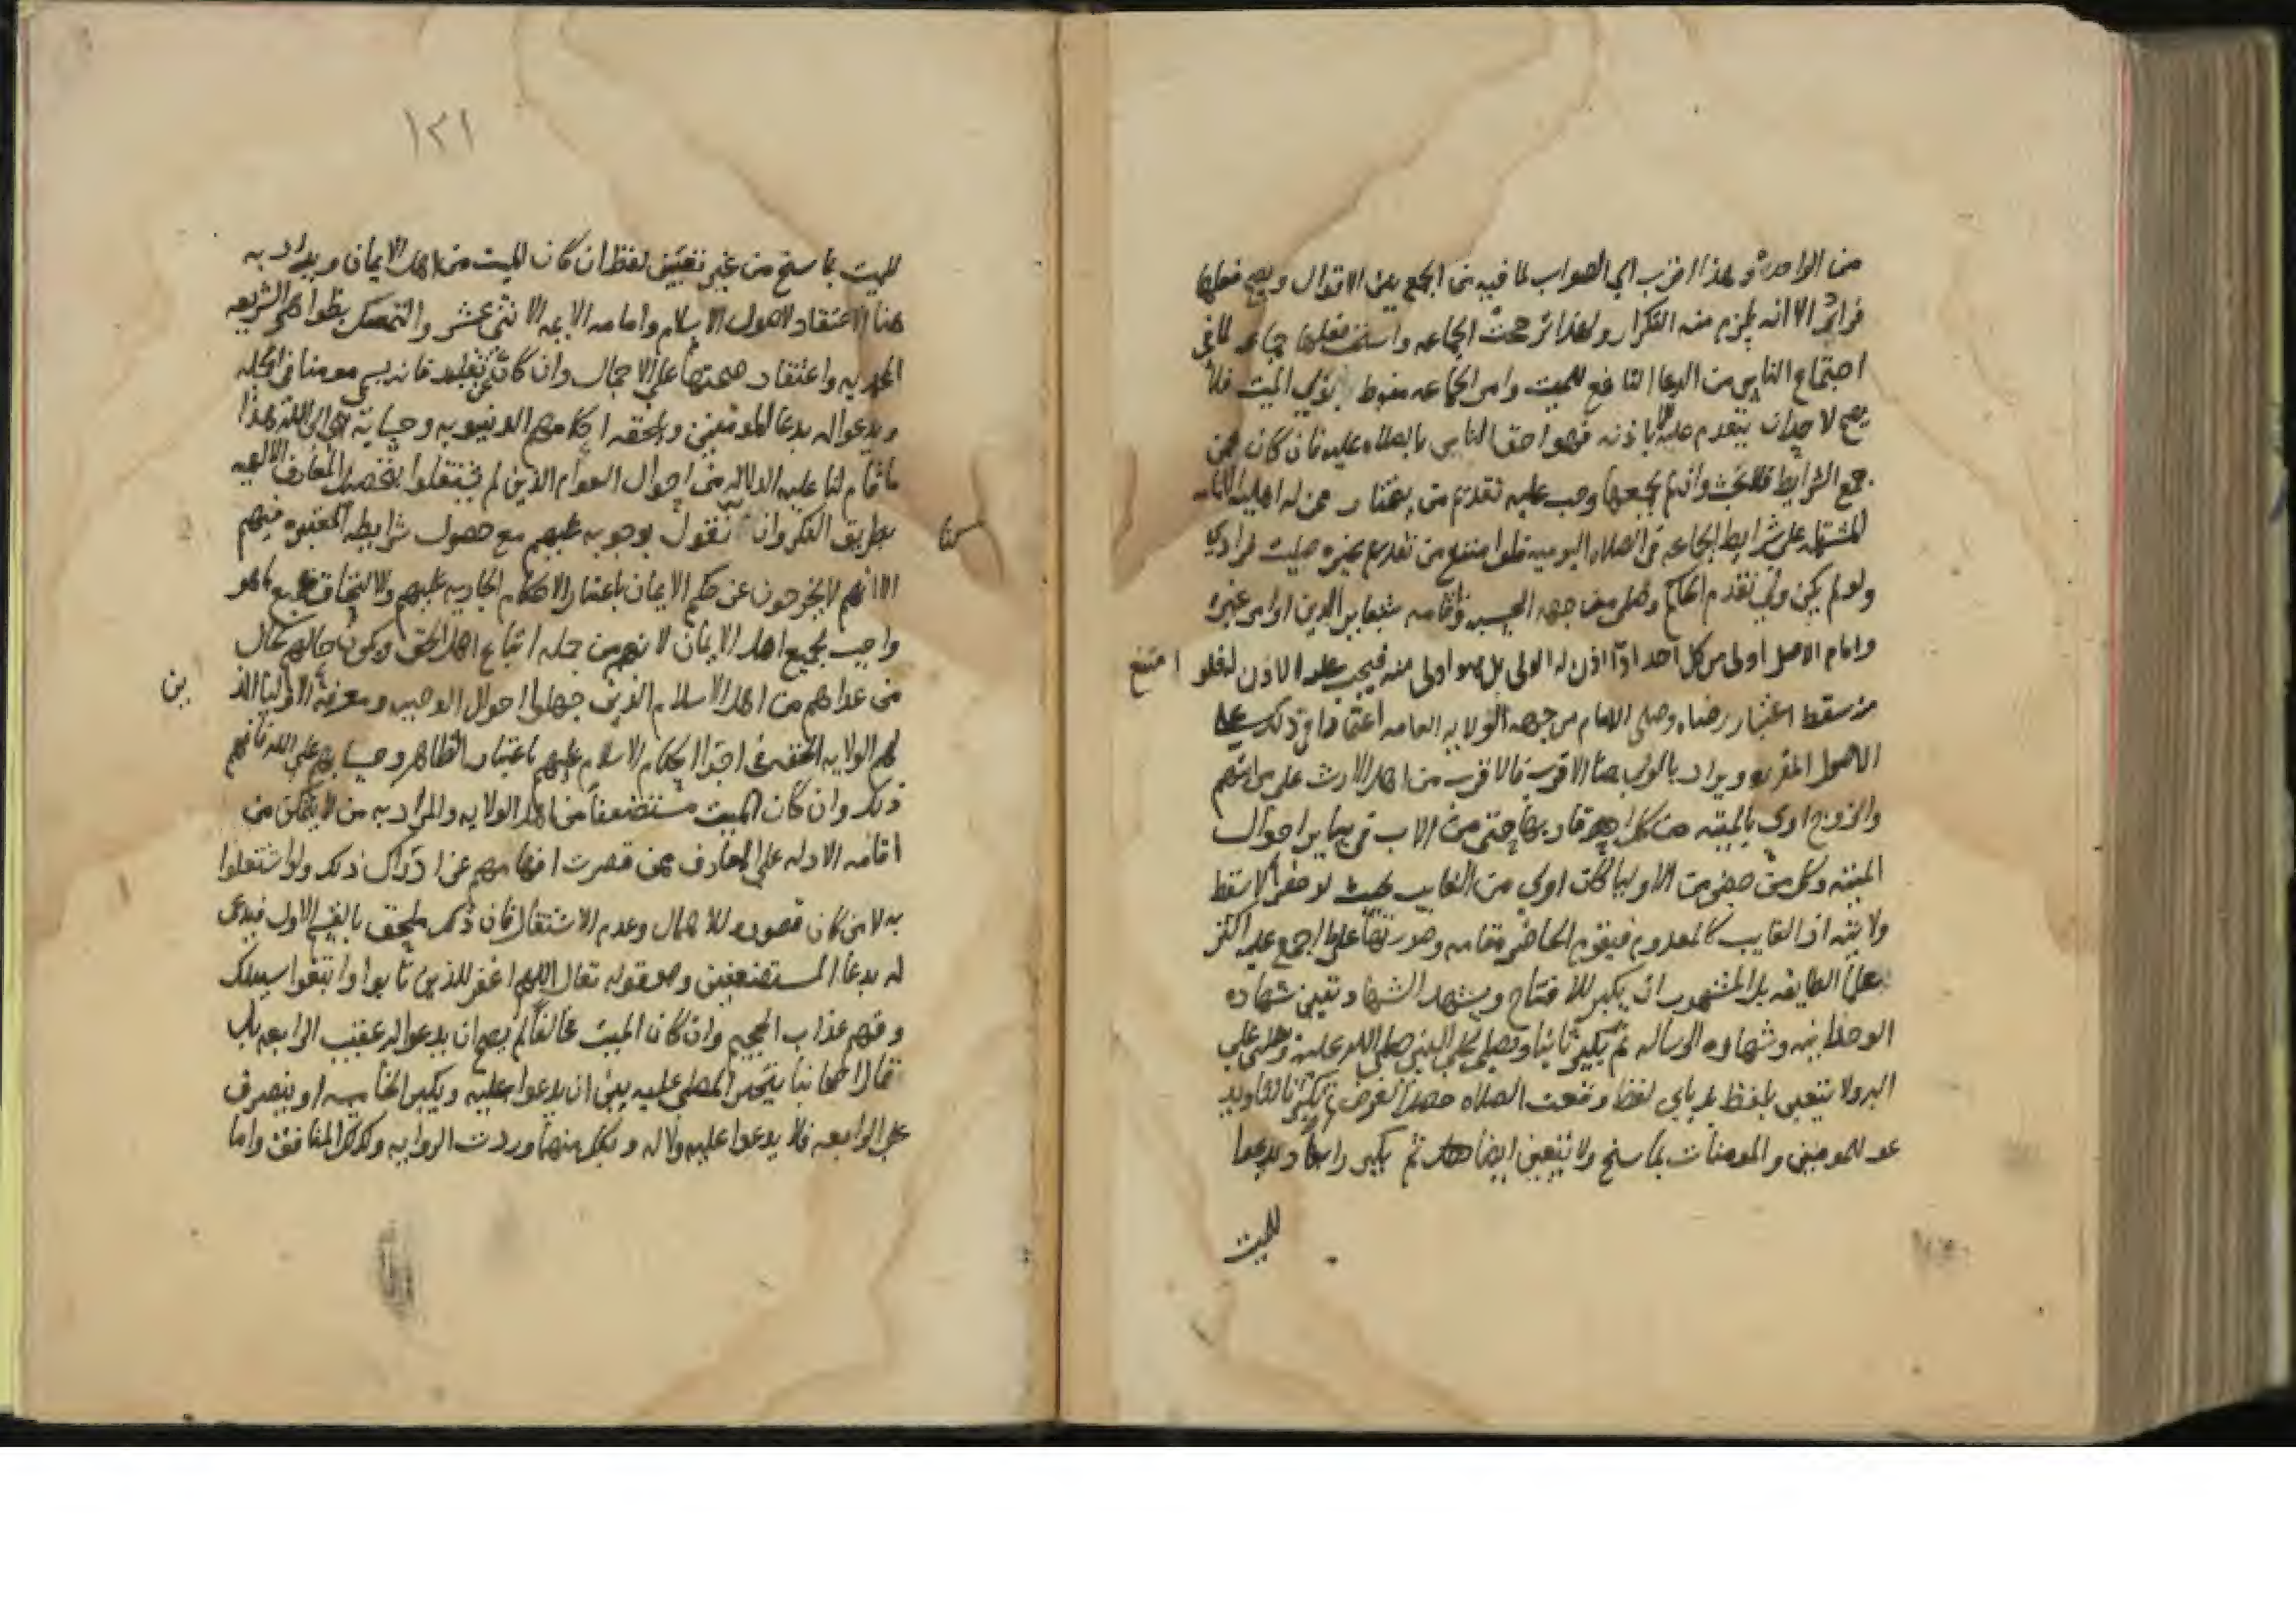 من الواحدة وهذا اقرب الى الصواب لما فيه من الجمع بين الاقوال ويصح فعلها
فرادى الا انه يلزم منه التكرار ولهذا ترجحت الجماعه واستحب فعلها جماعه لما في
اجتماع الناس من الدعا النافع للميت وامر الجماعه منوط بولي الميت فلا
يصح لاحد ان يتقدم عليه الا باذنه فهو احق الناس بالصلاه عليه فان كان ممن
جمع الشرايط فلا بحث وان لم يجمعها وجب عليه تقديم من يختار ممن له اهلية الامامه
المشتمله على شرايط الجماعه في الصلاه اليوميه فلو امتنع من تقديم غيره صليت فرادى
ولو لم يكن ولي تقدم الحاكم وصلى من جهه الحسبه واقامه شعاير الدين او امر غيره
وامام الاصل اولى من كل احد اذا اذن له الولي بل هو اولى منه فيجب عليه الاذن له فلو امتنع
من سقط اعتبار رضاه وصلى الامام من جهه الولايه العامه اعتمادا في ذلك على
الاصول المقرره ويراد بالولي هنا الاقرب فالاقرب من اهل الارث على مراتبهم
والزوج اولى بالميته من كل اقاربها حتى من الاب في ساير احوال
الميته وكل من حضر من الاوليا كان اولى من الغايب بحيث لو حضر لاسقط
ولايته اذ الغايب كالمعدوم فيقوم الحاضر مقامه وصورتها على ما اجمع عليه اكثر
علما الطايفه بل المشهور ان يكبر للافتتاح ويتشهد الشهادتين شهاده
الوحدانيه وشهاده الرساله ثم يكبر ثانيا ويصلي على النبي صلى الله عليه وصلى على
اله ولا يتعين بلفظ بل باي لفظ وقعت الصلاه حصل الغرض ثم يكبر ثالثا ويد
عو للمومنين والمومنات بما سنح ولا يتعين ايضا ثم يكبر رابعا ويدعوا
للميت
١٢١
للميت بما سنح من غير تعيين لفظ ان كان الميت من اهل الايمان ويراد به
هنا الاعتقاد لاصول الاسلام وامامه الايمه الاثني عشر والتمسك بظواهر الشريعه
المحمديه واعتقاد صحتها على الاجمال وان كان عن تقليد فانه يسمى مومنا في الجمله
ويدعوا له بدعا المومنين ويلحقه احكامهم الدنيويه وحسابه على الله هذا
ما قام لنا عليه الدلاله من احوال العوام الذين لم يشتغلوا بتحصيل المعارف الالهيه
بطريق الفكر وان نقول بوجوبه عليهم مع حصول شرايطه المعتبره فيهم
كنا
الا انهم لا يخرجون عن حكم الايمان باعتبار الاحكام الجاريه عليهم والالتحاق بجميع ما هو
واجب بجميع اهل الايمان لانهم من جمله اتباع اهل الحق ويكون حالهم كحال
من عداهم من اهل الاسلام الذين جهلوا احوال التوحيد ومعرفة الاوليا الذ
ين
لهم الولايه الحقه في اجرا احكام الاسلام عليهم باعتبار الظاهر وحسابهم على الله فافهم
ذلك وان كان الميت مستضعفا من اهل الولايه والمراد به من لا يتمكن من
اقامه الادله على المعارف ممن قصرت افهامهم عن ادراك ذلك ولو اشتغلوا
به لا من كان قصوره للاهمال وعدم الاشتغال فان ذلك ملحق بالقسم الاول فيدعى
له بدعا المستضعفين وهو قوله تعالى اللهم اغفر للذين تابوا واتبعوا سبيلك
وقهم عذاب الجحيم وان كان الميت مخالفا لم يصح ان يدعوا له عقيب الرابعه بل
يتخير المصلي عليه بين ان يدعوا عليه ويكبر الخامسه او ينصرف
على الرابعه فلا يدعوا عليه ولا له وبكل منهما وردت الروايه وكذلك المنافق واما